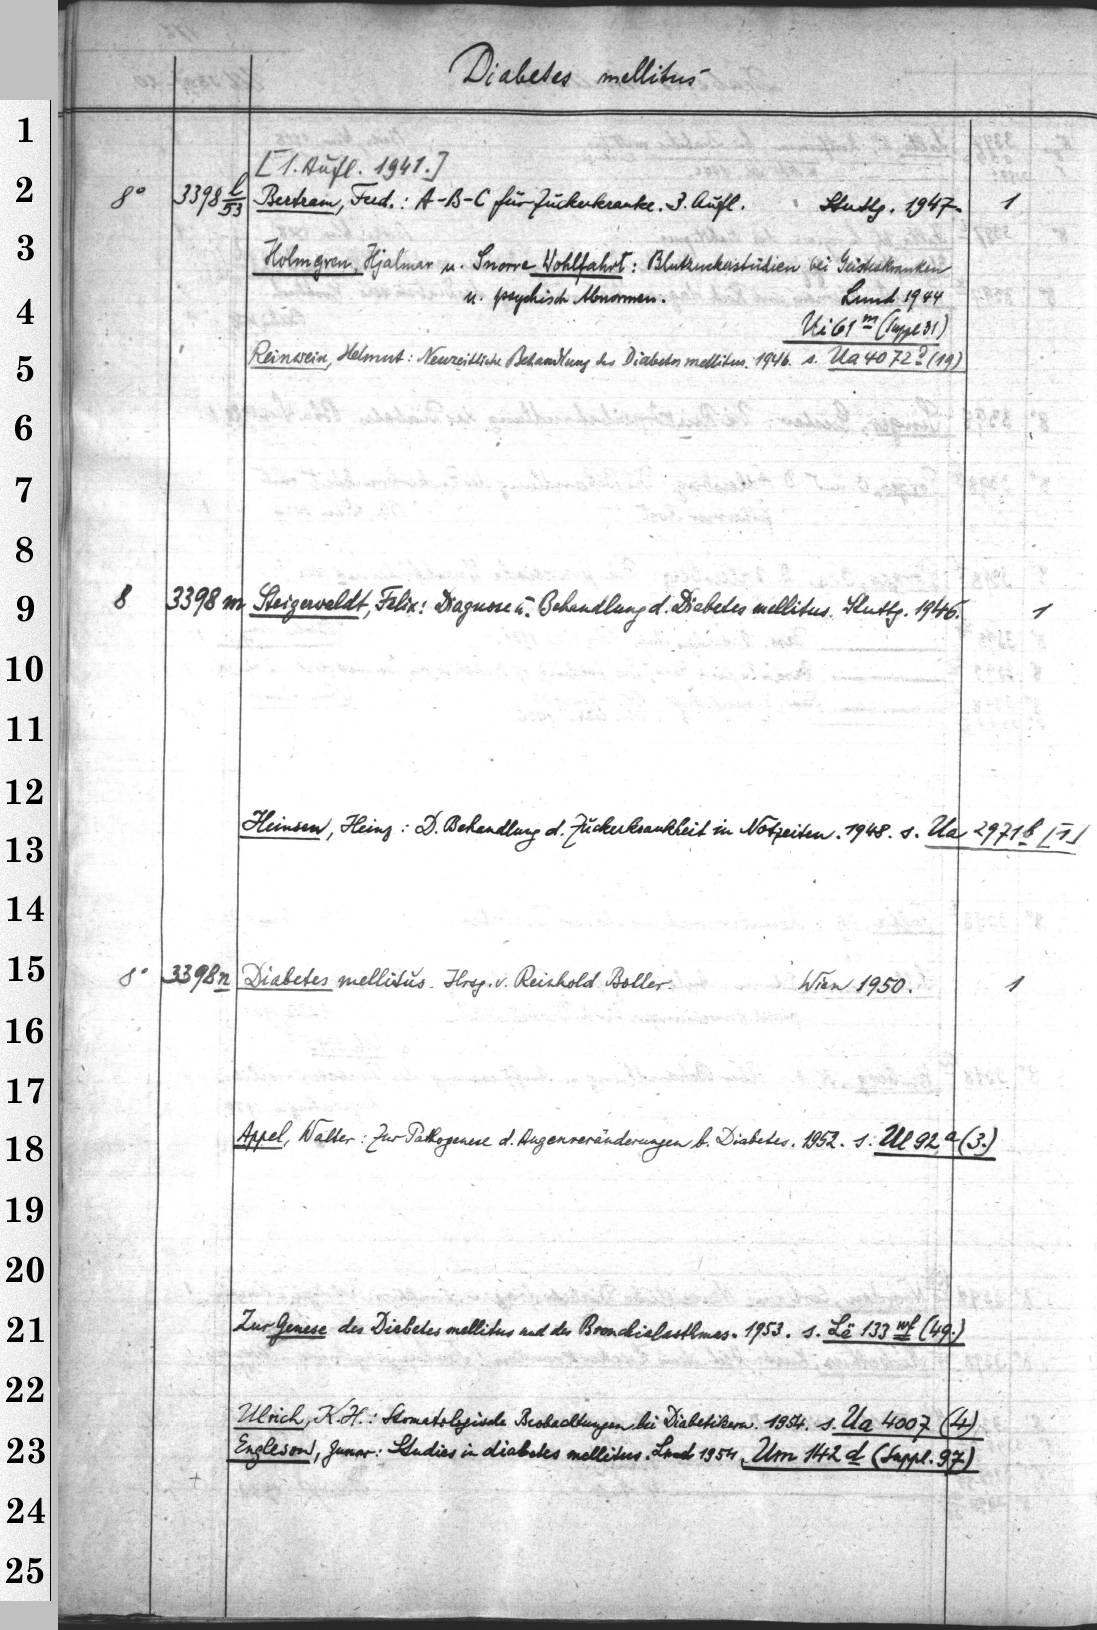 Diabetes mellitus
1
[1. Aufl. 1941.]
2 8° 3398 l/53 Bertram, Ferd.: A-B-C für Zuckerkranke. 3. Aufl. Stuttg. 1947. 1
3 Holmgren, Hjalmar u. Snorre Wohlfahrt: Blutzuckerstudien bei Geisteskranken
u. psychisch Abnormen. Lund 1944
4 Ui 61 m (Suppl 31)
5 Reinwein, Helmut: Neuzeitliche Behandlung des Diabetes mellitus. 1946. s. Ua 4072 (19)
6
7
8
9 8 3398 m Steigerwaldt, Felix: Diagnose u. Behandlung d. Diabetes mellitus. Stuttg. 1946. 1
10
11
12
13 Heinsen, Heinz: D. Behandlung d. Zuckerkrankheit in Notzeiten. 1948. s. Ua 2971 b [1]
14
15 8° 3398 n Diabetes mellitus. Hrsg. v. Reinhold Boller. Wien 1950. 1
16
17
18 Appel, Walter: Zur Pathogenese d. Augenveränderungen b. Diabetes. 1952. s. Ul 92 a (3.)
19
20
21 Zur Genese des Diabetes mellitus und des Bronchialasthmas. 1953. s. Lë 133 wf (49.)
22
Ulrich, K. H.: Stomatologische Beobachtungen bei Diabetikern. 1954. s. Ua 4007 (4)
23 Engleson, Gunnar: Studies in diabetes mellitus. Lund 1954 Um 142 d (Suppl. 97)
24
25